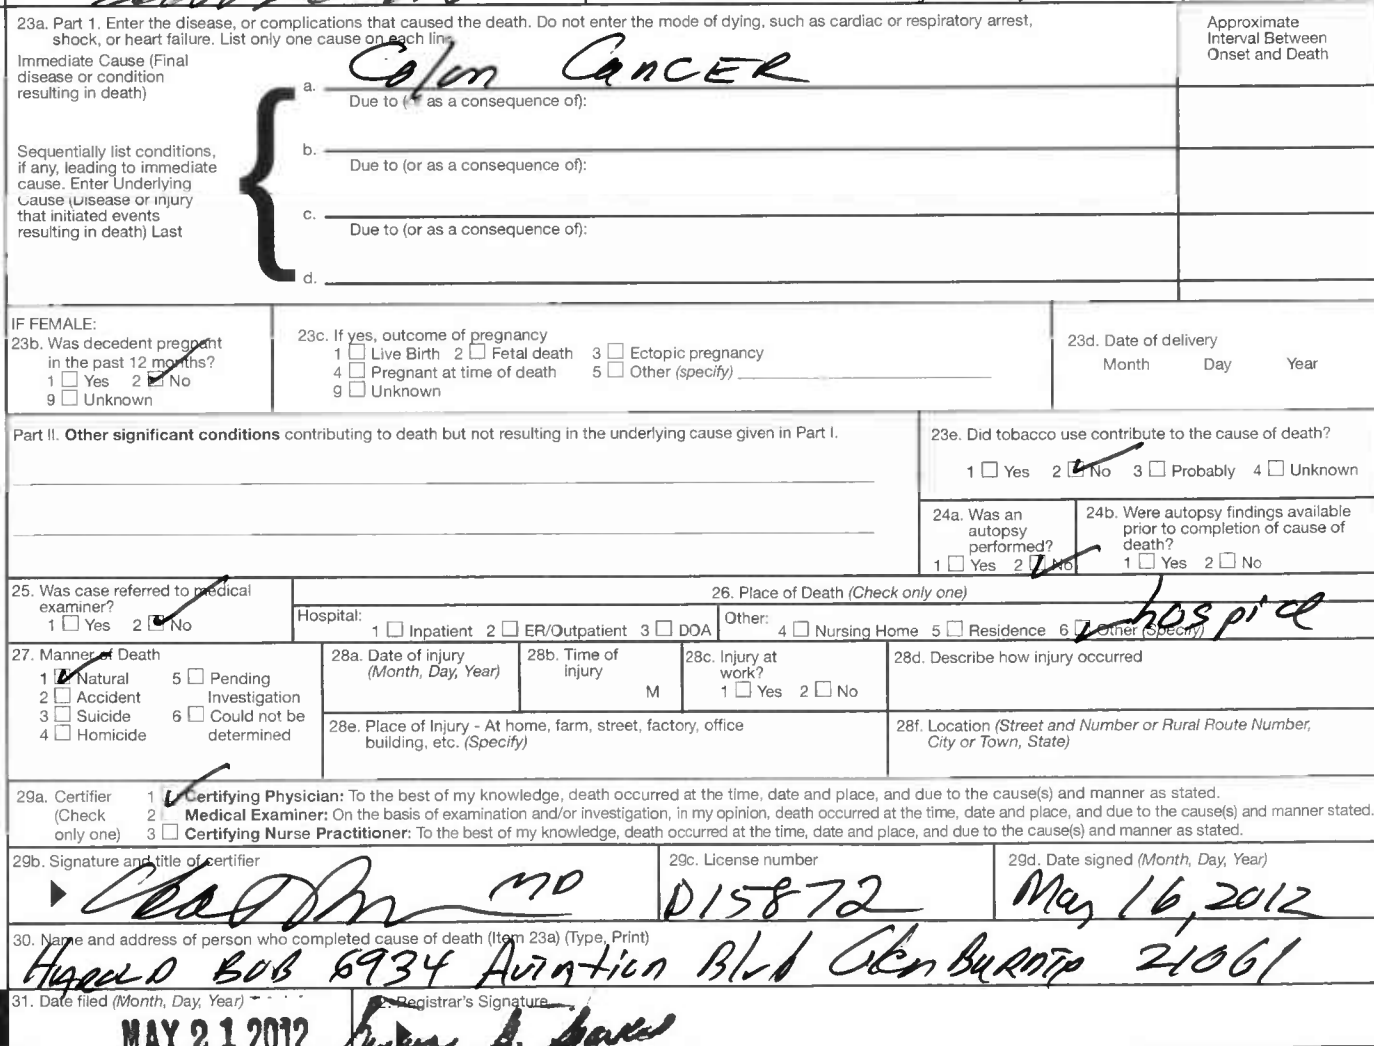 23a. Part 1. Enter the disease, or complications that caused the death. Do not enter the mode of dying, such as cardiac or respiratory arrest,
shock, or heart failure. List only one cause on each line
Approximate
Interval Between
Onset and Death
Immediate Cause (Final
disease or condition
resulting in death)
a. Colon CANCER
Due to ( as a consequence of):
Sequentially list conditions,
if any, leading to immediate
cause. Enter Underlying
Cause (Disease or injury
that initiated events
resulting in death) Last
b.
Due to (or as a consequence of):
c.
Due to (or as a consequence of):
d.
IF FEMALE:
23b. Was decedent pregnant
in the past 12 months?
1 ☐ Yes 2 ☑ No
9 ☐ Unknown
23c. If yes, outcome of pregnancy
1 ☐ Live Birth 2 ☐ Fetal death 3 ☐ Ectopic pregnancy
4 ☐ Pregnant at time of death 5 ☐ Other (specify)
9 ☐ Unknown
23d. Date of delivery
Month Day Year
Part II. Other significant conditions contributing to death but not resulting in the underlying cause given in Part I.
23e. Did tobacco use contribute to the cause of death?
1 ☐ Yes 2 ☑ No 3 ☐ Probably 4 ☐ Unknown
24a. Was an
autopsy
performed?
1 ☐ Yes 2 ☑ No
24b. Were autopsy findings available
prior to completion of cause of
death?
1 ☐ Yes 2 ☐ No
25. Was case referred to medical
examiner?
1 ☐ Yes 2 ☑ No
26. Place of Death (Check only one)
Hospital:
1 ☐ Inpatient 2 ☐ ER/Outpatient 3 ☐ DOA
Other:
4 ☐ Nursing Home 5 ☐ Residence 6 ☑ Other (Specify) hospice
27. Manner of Death
1 ☑ Natural 5 ☐ Pending
2 ☐ Accident Investigation
3 ☐ Suicide 6 ☐ Could not be
4 ☐ Homicide determined
28a. Date of injury
(Month, Day, Year)
28b. Time of
injury
M
28c. Injury at
work?
1 ☐ Yes 2 ☐ No
28d. Describe how injury occurred
28e. Place of Injury - At home, farm, street, factory, office
building, etc. (Specify)
28f. Location (Street and Number or Rural Route Number,
City or Town, State)
29a. Certifier
(Check
only one)
1 ☑ Certifying Physician: To the best of my knowledge, death occurred at the time, date and place, and due to the cause(s) and manner as stated.
2 Medical Examiner: On the basis of examination and/or investigation, in my opinion, death occurred at the time, date and place, and due to the cause(s) and manner stated.
3 ☐ Certifying Nurse Practitioner: To the best of my knowledge, death occurred at the time, date and place, and due to the cause(s) and manner as stated.
29b. Signature and title of certifier
MD
29c. License number
D15872
29d. Date signed (Month, Day, Year)
May 16, 2012
30. Name and address of person who completed cause of death (Item 23a) (Type, Print)
HAROLD BOB 6934 Aviation Blvd Glen BURNIE 21061
31. Date filed (Month, Day, Year)
MAY 21 2012
2. Registrar's Signature